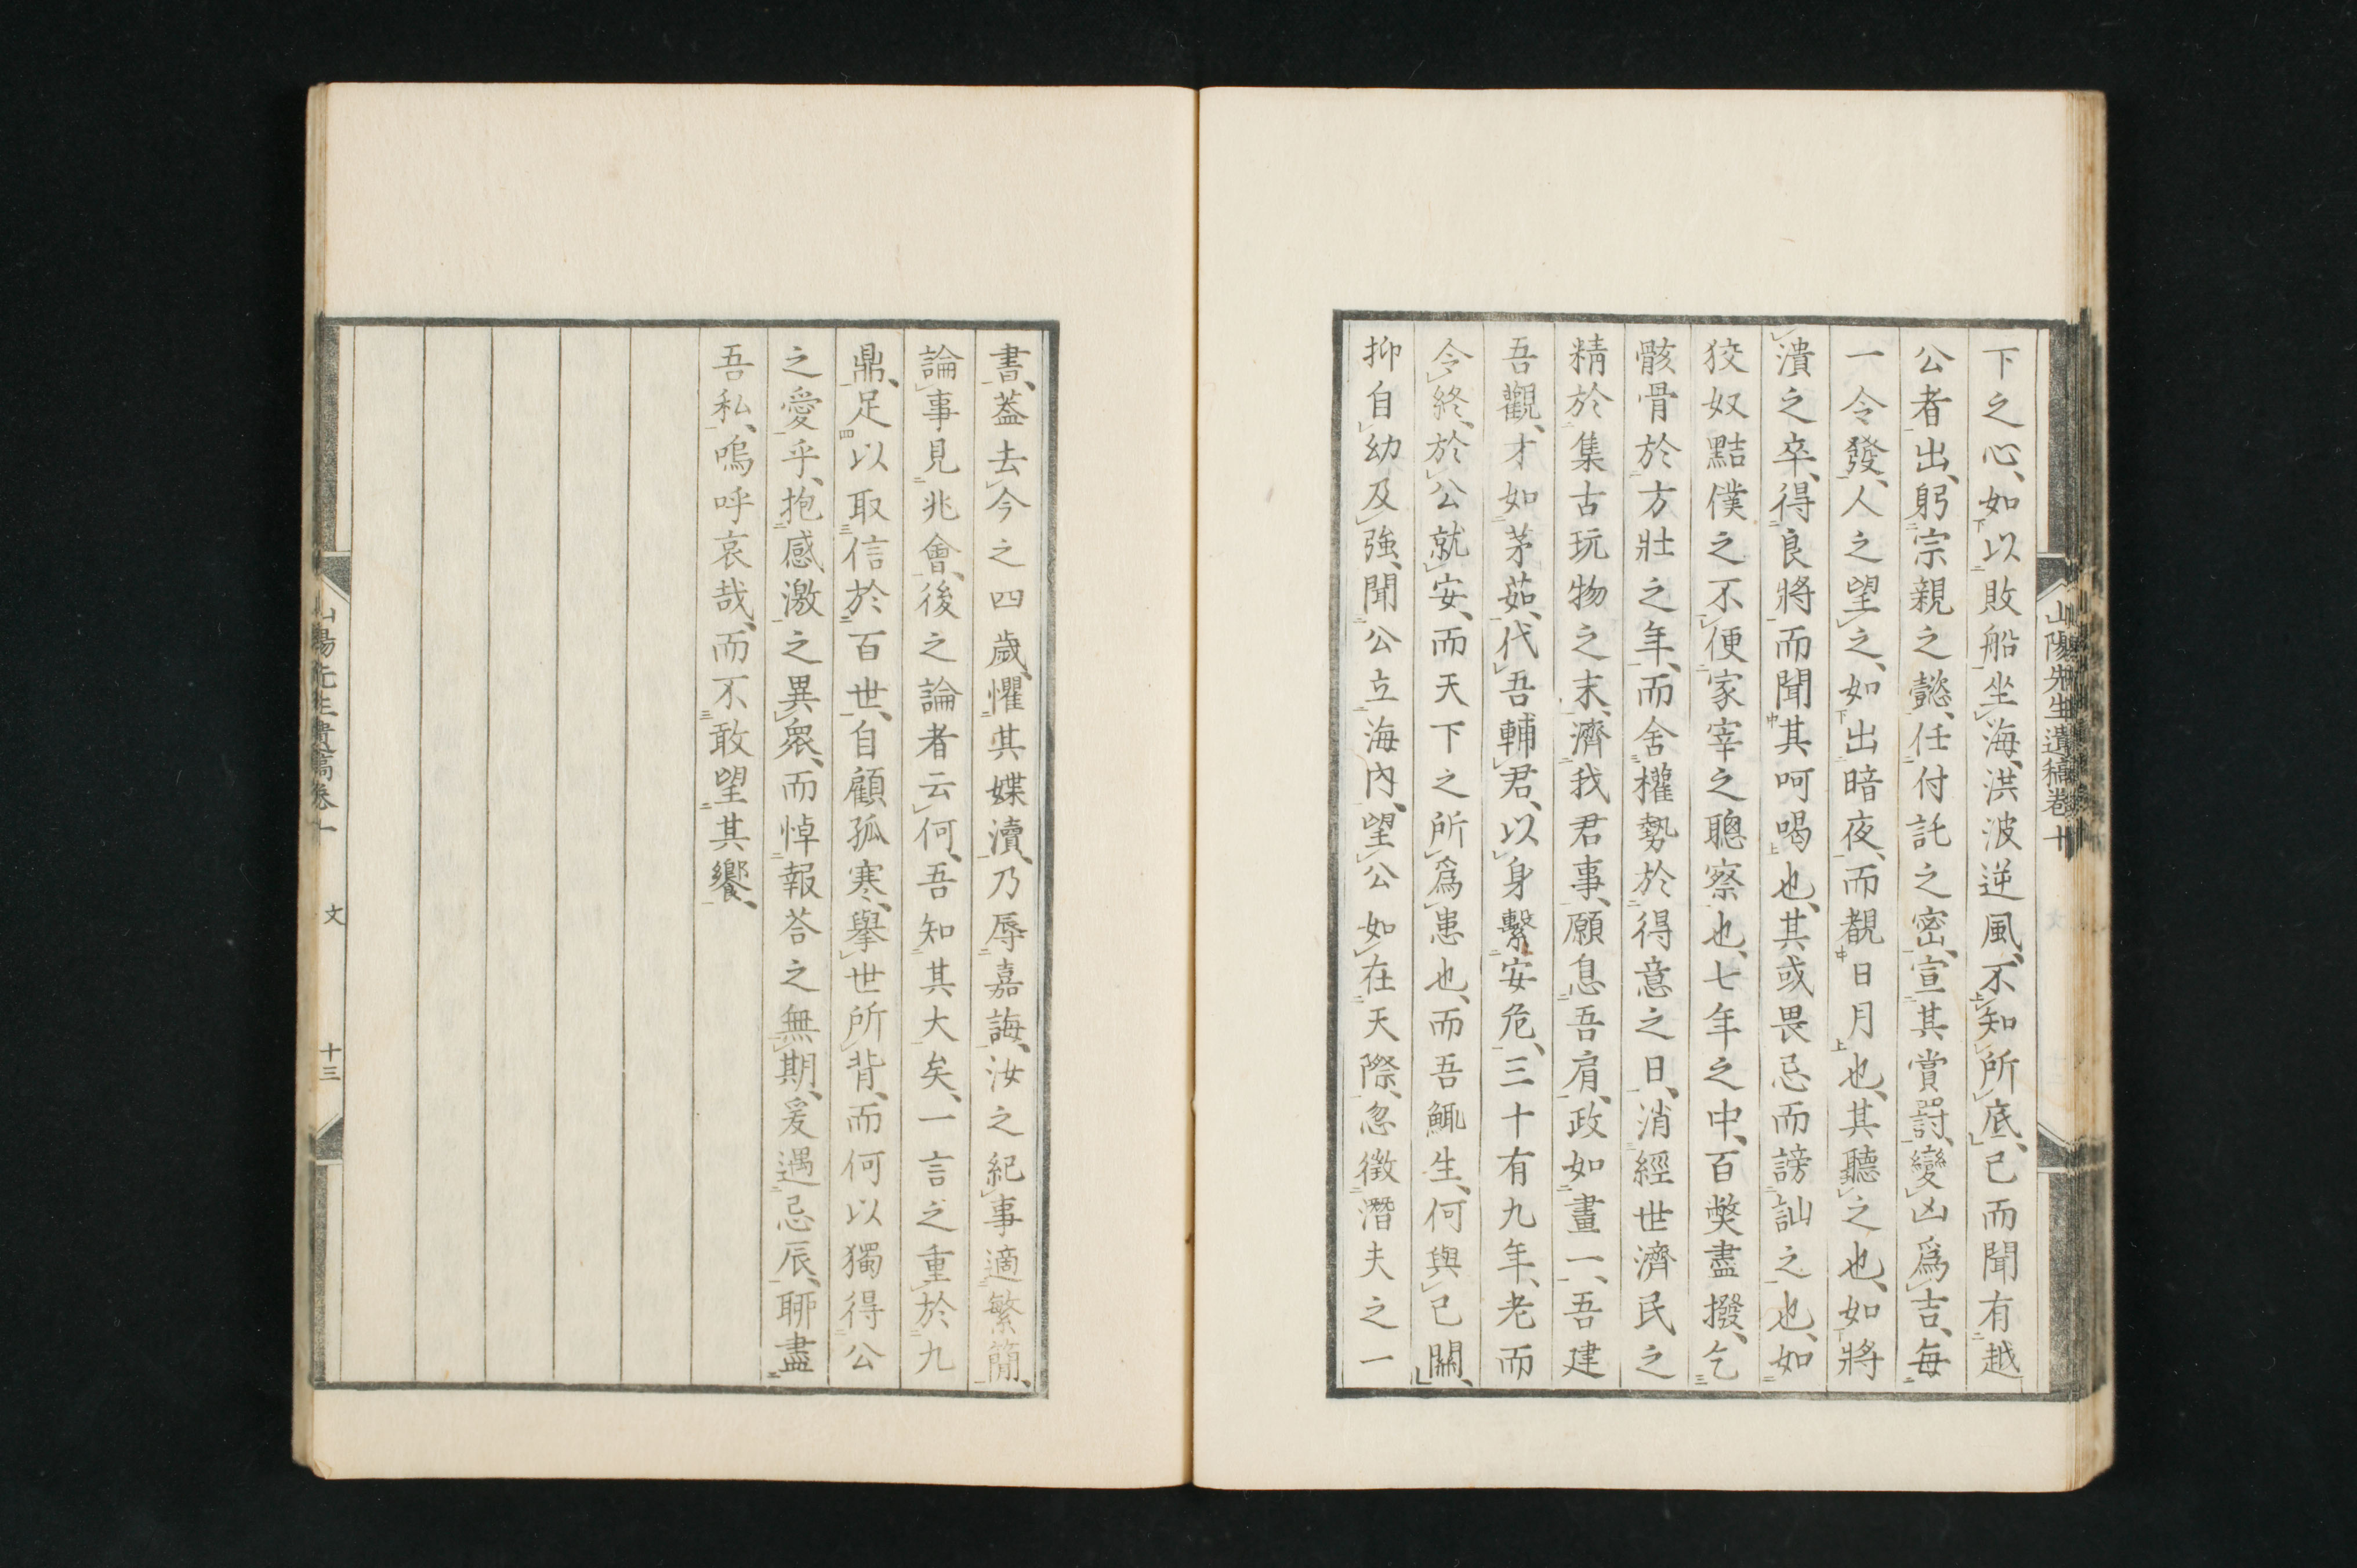 山陽先生遺稿卷十
下之心、如以敗船坐海、洪波逆風、不知所底、已而聞有越
公者出、躬宗親之懿、任付託之密、宣其賞罰、變凶爲吉、每
一令發、人之望之、如出暗夜、而覩日月也、其聽之也、如將
潰之卒、得良將而聞其呵喝也、其或畏忌而謗訕之也、如
狡奴黠僕之不便家宰之聰察也、七年之中、百獘盡撥、乞
骸骨於方壯之年、而舍權勢於得意之日、消經世濟民之
精於集古玩物之末、濟我君事、願息吾肩、政如畫一、吾建
吾觀、才如茅茹、代吾輔君、以身繫安危、三十有九年、老而
令終、於公就安、而天下之所爲患也、而吾鯫生、何與已關、
抑自幼及強、聞公立海內、望公如在天際、忽徵潛夫之一
書、葢去今之四歲、懼其媟瀆、乃辱嘉誨、汝之紀事適繁簡、
論事見兆會、後之論者云何、吾知其大矣、一言之重於九
鼎、足以取信於百世、自顧孤寒、擧世所背、而何以獨得公
之愛乎、抱感激之異衆、而悼報荅之無期、爰遇忌辰、聊盡
吾私、嗚呼哀哉、而不敢望其饗、
山陽先生遺稿卷十
文
十三